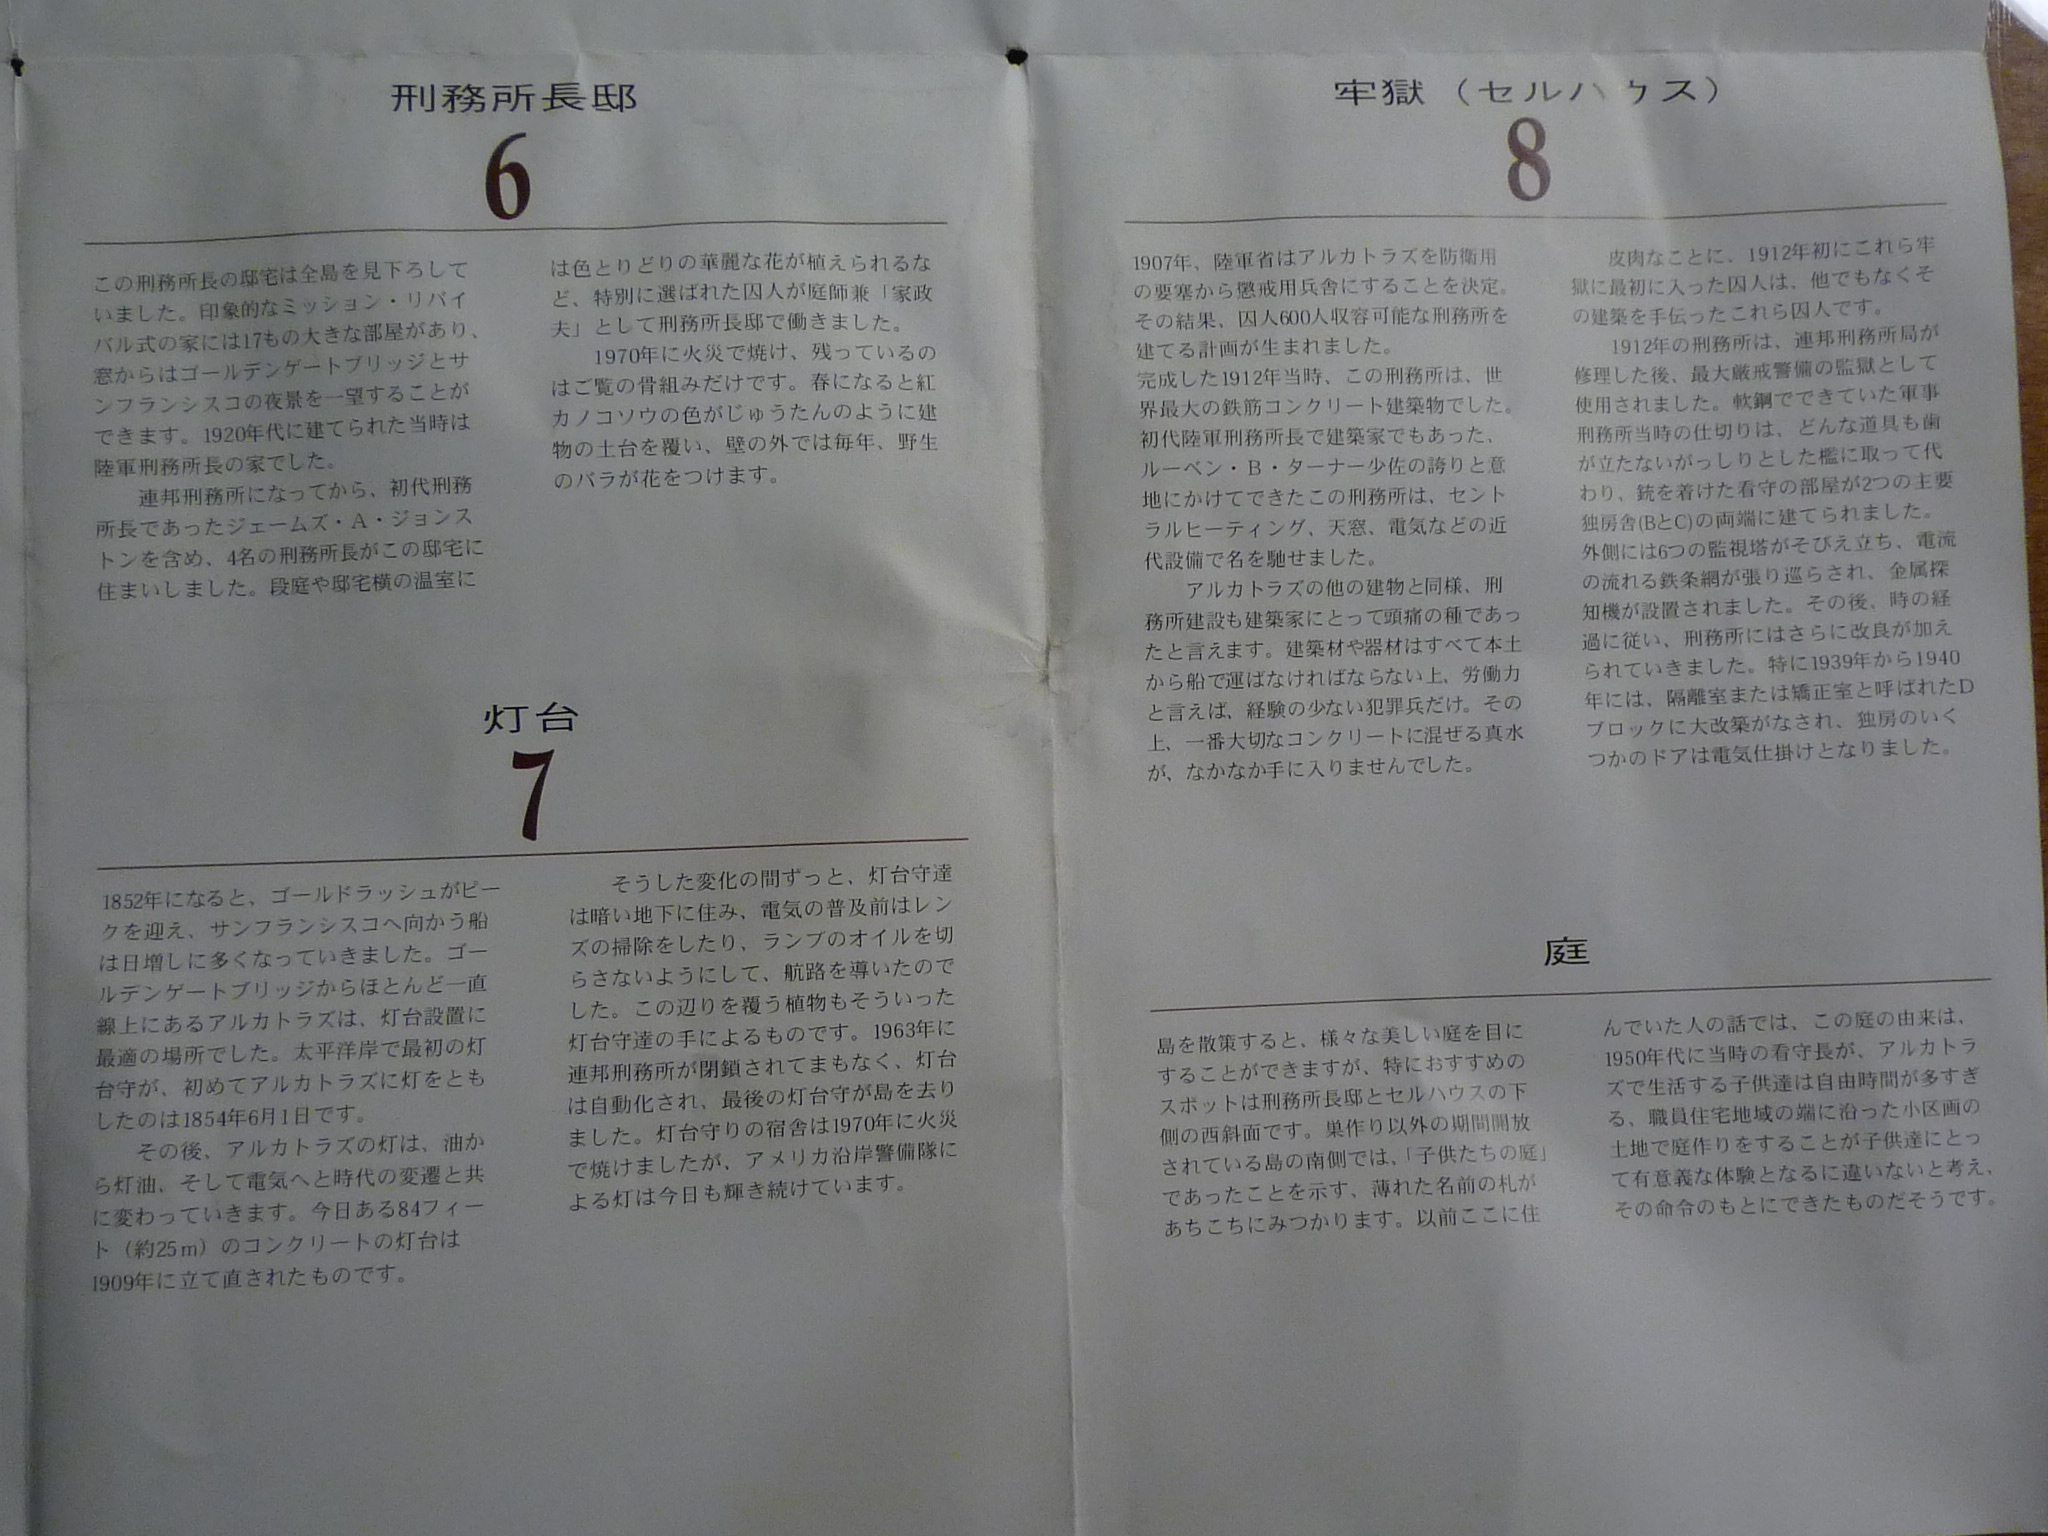 刑務所長邸
6
この刑務所長の邸宅は全島を見下ろして
いました。印象的なミッション・リバイ
バル式の家には17もの大きな部屋があり、
窓からはゴールデンゲートブリッジとサ
ンフランシスコの夜景を一望することが
できます。1920年代に建てられた当時は
陸軍刑務所長の家でした。
連邦刑務所になってから、初代刑務
所長であったジェームズ・A・ジョンス
トンを含め、4名の刑務所長がこの邸宅に
住まいしました。段庭や邸宅横の温室に
は色とりどりの華麗な花が植えられるな
ど、特別に選ばれた囚人が庭師兼「家政
夫」として刑務所長邸で働きました。
1970年に火災で焼け、残っているの
はご覧の骨組みだけです。春になると紅
カノコソウの色がじゅうたんのように建
物の土台を覆い、壁の外では毎年、野生
のバラが花をつけます。
灯台
7
1852年になると、ゴールドラッシュがピー
クを迎え、サンフランシスコへ向かう船
は日増しに多くなっていきました。ゴー
ルデンゲートブリッジからほとんど一直
線上にあるアルカトラズは、灯台設置に
最適の場所でした。太平洋岸で最初の灯
台守が、初めてアルカトラズに灯をとも
したのは1854年6月1日です。
その後、アルカトラズの灯は、油か
ら灯油、そして電気へと時代の変遷と共
に変わっていきます。今日ある84フィー
ト（約25m）のコンクリートの灯台は
1909年に立て直されたものです。
そうした変化の間ずっと、灯台守達
は暗い地下に住み、電気の普及前はレン
ズの掃除をしたり、ランプのオイルを切
らさないようにして、航路を導いたので
した。この辺りを覆う植物もそういった
灯台守達の手によるものです。1963年に
連邦刑務所が閉鎖されてまもなく、灯台
は自動化され、最後の灯台守が島を去り
ました。灯台守りの宿舎は1970年に火災
で焼けましたが、アメリカ沿岸警備隊に
よる灯は今日も輝き続けています。
牢獄（セルハウス）
8
1907年、陸軍省はアルカトラズを防衛用
の要塞から懲戒用兵舎にすることを決定。
その結果、囚人600人収容可能な刑務所を
建てる計画が生まれました。
完成した1912年当時、この刑務所は、世
界最大の鉄筋コンクリート建築物でした。
初代陸軍刑務所長で建築家でもあった、
ルーベン・B・ターナー少佐の誇りと意
地にかけてできたこの刑務所は、セント
ラルヒーティング、天窓、電気などの近
代設備で名を馳せました。
アルカトラズの他の建物と同様、刑
務所建設も建築家にとって頭痛の種であっ
たと言えます。建築材や器材はすべて本土
から船で運ばなければならない上、労働力
と言えば、経験の少ない犯罪兵だけ。その
上、一番大切なコンクリートに混ぜる真水
が、なかなか手に入りませんでした。
皮肉なことに、1912年初にこれら牢
獄に最初に入った囚人は、他でもなくそ
の建築を手伝ったこれら囚人です。
1912年の刑務所は、連邦刑務所局が
修理した後、最大厳戒警備の監獄として
使用されました。軟鋼でできていた軍事
刑務所当時の仕切りは、どんな道具も歯
が立たないがっしりとした檻に取って代
わり、銃を着けた看守の部屋が2つの主要
独房舎(BとC)の両端に建てられました。
外側には6つの監視塔がそびえ立ち、電流
の流れる鉄条網が張り巡らされ、金属探
知機が設置されました。その後、時の経
過に従い、刑務所にはさらに改良が加え
られていきました。特に1939年から1940
年には、隔離室または矯正室と呼ばれたD
ブロックに大改築がなされ、独房のいく
つかのドアは電気仕掛けとなりました。
庭
島を散策すると、様々な美しい庭を目に
することができますが、特におすすめの
スポットは刑務所長邸とセルハウスの下
側の西斜面です。巣作り以外の期間開放
されている島の南側では、「子供たちの庭」
であったことを示す、薄れた名前の札が
あちこちにみつかります。以前ここに住
んでいた人の話では、この庭の由来は、
1950年代に当時の看守長が、アルカトラ
ズで生活する子供達は自由時間が多すぎ
る、職員住宅地域の端に沿った小区画の
土地で庭作りをすることが子供達にとっ
て有意義な体験となるに違いないと考え、
その命令のもとにできたものだそうです。